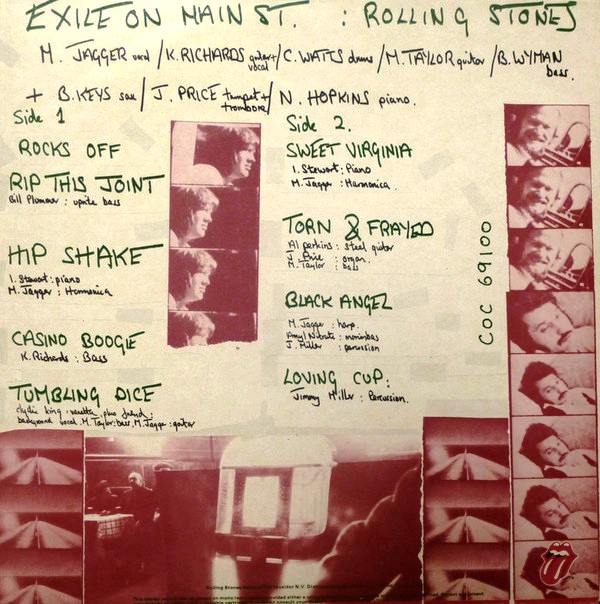 EXILE ON MAIN ST. : ROLLING STONES
M. JAGGER vocal / K. RICHARDS guitar + vocal / C. WATTS drums / M. TAYLOR guitar / B. WYMAN bass.
+ B. KEYS sax / J. PRICE trumpet + trombone / N. HOPKINS piano.
Side 1
ROCKS OFF
RIP THIS JOINT
Bill Plummer : uprite bass
HIP SHAKE
I. Stewart : piano
M. Jagger : Harmonica
CASINO BOOGIE
K. Richards : Bass
TUMBLING DICE
clydie king, vanetta, plus friend :
background vocal. M. Taylor : bass. M. Jagger : guitar
Side 2.
SWEET VIRGINIA
I. Stewart : Piano
M. Jagger : Harmonica.
TORN & FRAYED
Al perkins : steel guitar
J. Price : organ
M. Taylor : bass
BLACK ANGEL
M. Jagger : harp.
Amyl Nitrate : marimbas
J. Miller : percussion
LOVING CUP :
Jimmy Miller : Percussion.
COC 69100